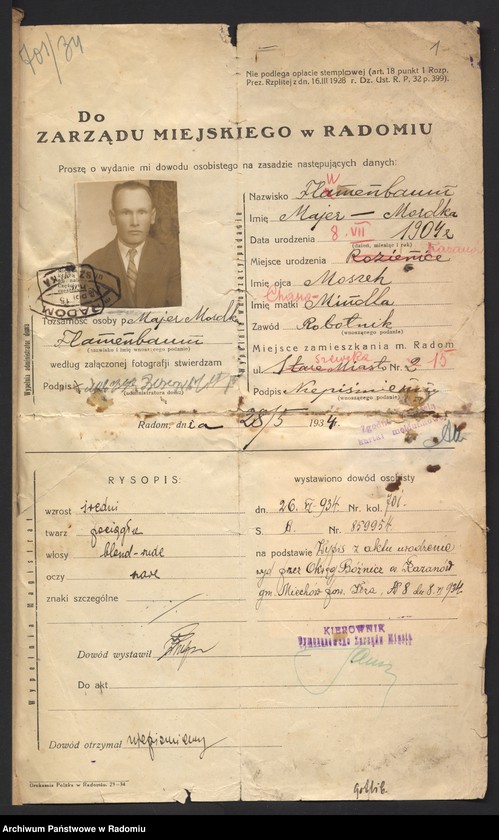 701/34
1
Nie podlega opłacie stemplowej (art. 18 punkt 1 Rozp.
Prez. Rzplitej z dn. 16.III 1928 r. Dz. Ust. R. P. 32 p. 399).
Do
ZARZĄDU MIEJSKIEGO w RADOMIU
Proszę o wydanie mi dowodu osobistego na zasadzie następujących danych:
Nazwisko Flamenbaum
W
Imię Majer — Mordka
Data urodzenia 8. VII 1904 r.
(dzień, miesiąc i rok)
Miejsce urodzenia Kozienice
Imię ojca Moszek
Chana-
Imię matki Mindla
Zawód Robotnik
(wnoszącego podanie)
Miejsce zamieszkania m. Radom
Szewska
ul. Stare Miasto Nr. 2 15
Podpis Niepiśmienny
(wnoszącego podanie)
RADOM
Tożsamość osoby p Majer Mordka
Flamenbaum
(nazwisko i imię wnoszącego podanie)
według załączonej fotografji stwierdzam
Podpis
(administratora domu)
Wypełnia administrator domu
Radom, dnia 28/5 1934.
Wypełnia Magistrat
RYSOPIS:
wzrost średni
twarz pociągła
włosy blond-rude
oczy szare
znaki szczególne
wystawiono dowód osobisty
dn. 26. VI 934. Nr. kol. 701.
S. A Nr. 859954
na podstawie Wypis z aktu urodzenia
wyd przez Okręg Bóżnicz w Kazanów
gm. Miechów pow. Iłża, № 8 dn 8. 934.
KIEROWNIK
Dowód wystawił
Do akt
Dowód otrzymał niepiśmienny
Drukarnia Polska w Radomiu. 25–34
Gotlib.
Archiwum Państwowe w Radomiu